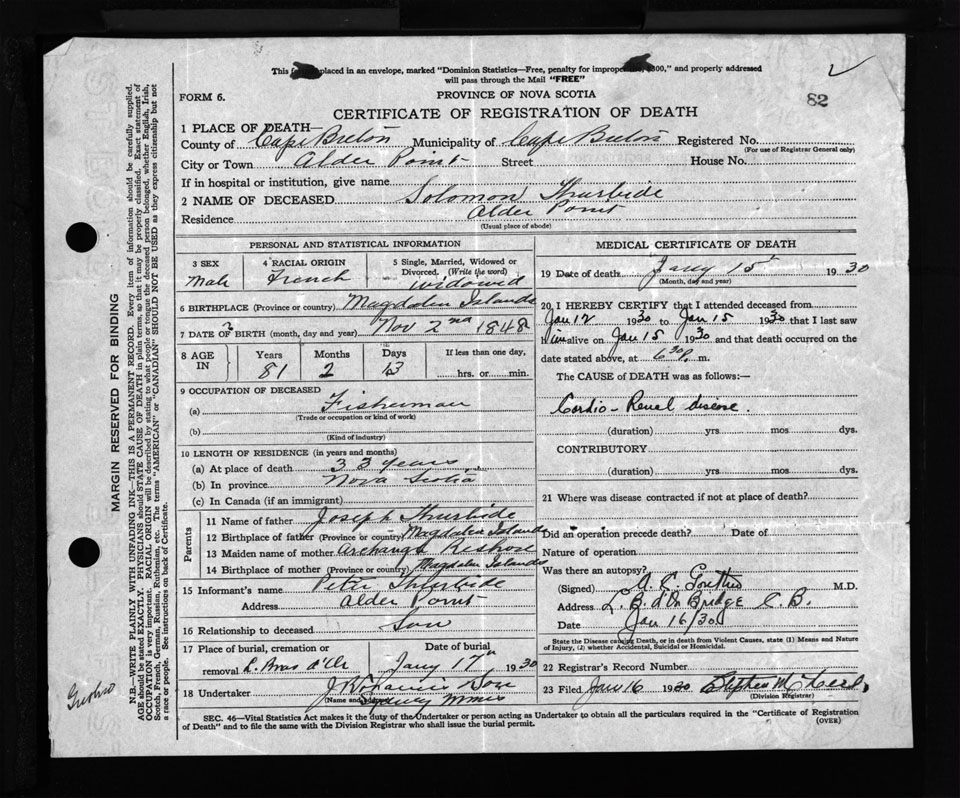 This placed in an envelope, marked "Dominion Statistics—Free, penalty for improper $300," and properly addressed
will pass through the Mail "FREE"
FORM 6.
PROVINCE OF NOVA SCOTIA
82
CERTIFICATE OF REGISTRATION OF DEATH
1 PLACE OF DEATH—
County of Cape Breton Municipality of Cape Breton Registered No.
(For use of Registrar General only)
City or Town Alder Point Street House No.
If in hospital or institution, give name
2 NAME OF DECEASED Solomon Thurbide
Residence Alder Point
(Usual place of abode)
PERSONAL AND STATISTICAL INFORMATION
3 SEX 4 RACIAL ORIGIN 5 Single, Married, Widowed or
Divorced. (Write the word)
Male French widowed
6 BIRTHPLACE (Province or country) Magdalen Islands
7 DATE OF BIRTH (month, day and year) Nov 2nd 1848
8 AGE IN Years Months Days If less than one day,
81 2 13 hrs. or min.
9 OCCUPATION OF DECEASED
(a) Fisherman
(Trade or occupation or kind of work)
(b)
(Kind of industry)
10 LENGTH OF RESIDENCE (in years and months)
(a) At place of death 33 years
(b) In province Nova Scotia
(c) In Canada (if an immigrant)
Parents
11 Name of father Joseph Thurbide
12 Birthplace of father (Province or country) Magdalen Islands
13 Maiden name of mother
14 Birthplace of mother (Province or country) Magdalen Islands
15 Informant's name Peter Thurbide
Address Alder Point
16 Relationship to deceased Son
17 Place of burial, cremation or Date of burial
removal L. Bras d'Or Jany 17th 1930
18 Undertaker
(Name and Sydney Mines
MEDICAL CERTIFICATE OF DEATH
19 Date of death Jany 15 1930
(Month, day and year)
20 I HEREBY CERTIFY that I attended deceased from
Jan 12 1930 to Jan 15 1930 that I last saw
him alive on Jan 15 1930 and that death occurred on the
date stated above, at 6 30 p. m.
The CAUSE of DEATH was as follows:—
Cardio-Renal disease.
(duration) yrs. mos. dys.
CONTRIBUTORY
(duration) yrs. mos. dys.
21 Where was disease contracted if not at place of death?
Did an operation precede death? Date of
Nature of operation
Was there an autopsy?
(Signed) M.D.
Address L. B. d'Or Bridge C.B.
Date Jan 16/30
State the Disease causing Death, or in death from Violent Causes, state (1) Means and Nature
of Injury, (2) whether Accidental, Suicidal or Homicidal.
22 Registrar's Record Number
23 Filed Jan 16 1930 Stephen
(Division Registrar)
SEC. 46—Vital Statistics Act makes it the duty of the Undertaker or person acting as Undertaker to obtain all the particulars required in the "Certificate of Registration
of Death" and to file the same with the Division Registrar who shall issue the burial permit.
(OVER)
MARGIN RESERVED FOR BINDING
N.B.—WRITE PLAINLY WITH UNFADING INK—THIS IS A PERMANENT RECORD. Every item of information should be carefully supplied.
AGE should be stated EXACTLY. PHYSICIANS should STATE CAUSE OF DEATH in plain terms, so that it may be properly classified. Exact statement of
OCCUPATION is very important. RACIAL ORIGIN will be described by stating to what people or tongue the deceased person belonged, whether English, Irish,
Scotch, French, German, Russian, Ruthenian, etc. The terms "AMERICAN" or "CANADIAN" SHOULD NOT BE USED as they express citizenship but not
a race or people. See instructions on back of Certificate.